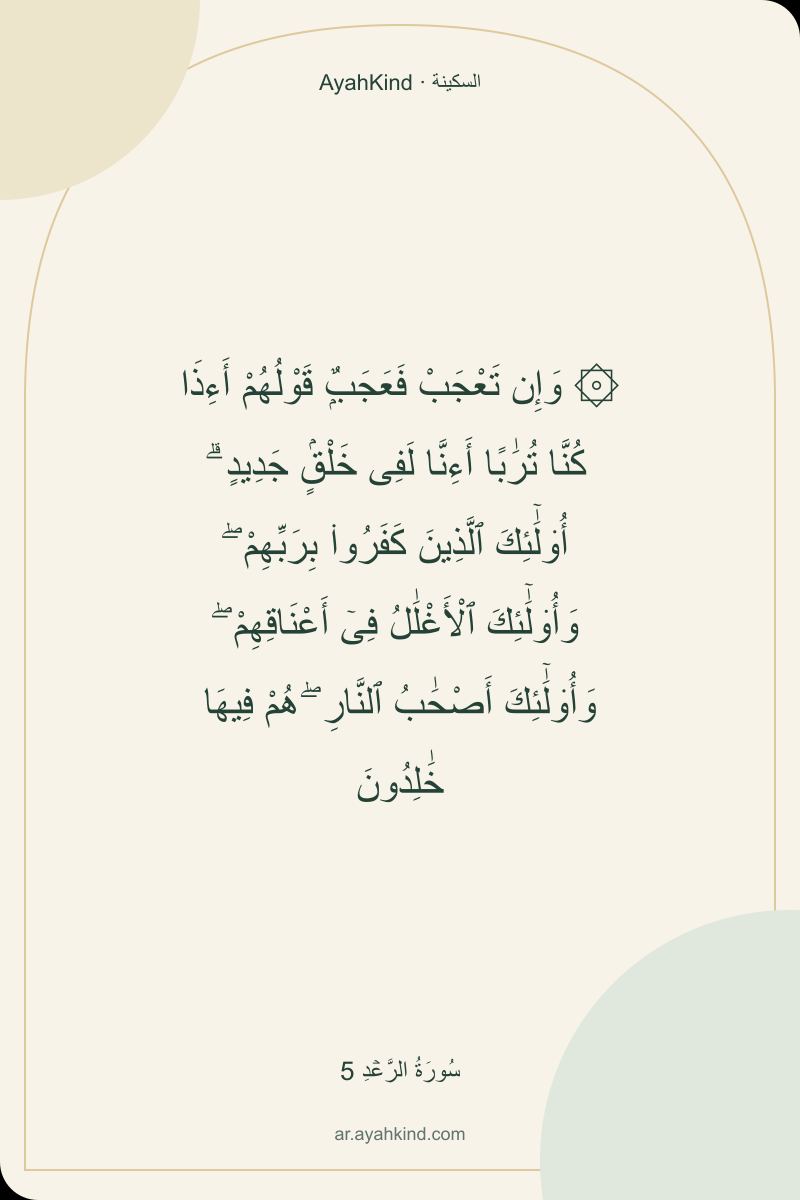 السكينة · AyahKind
۞ وَإِن تَعْجَبْ فَعَجَبٌۭ قَوْلُهُمْ أَءِذَا
كُنَّا تُرَٰبًا أَءِنَّا لَفِى خَلْقٍۢ جَدِيدٍ ۗ
أُو۟لَٰٓئِكَ ٱلَّذِينَ كَفَرُوا۟ بِرَبِّهِمْ ۖ
وَأُو۟لَٰٓئِكَ ٱلْأَغْلَٰلُ فِىٓ أَعْنَاقِهِمْ ۖ
وَأُو۟لَٰٓئِكَ أَصْحَٰبُ ٱلنَّارِ ۖ هُمْ فِيهَا
خَٰلِدُونَ
سُورَةُ الرَّعْدِ 5
ar.ayahkind.com